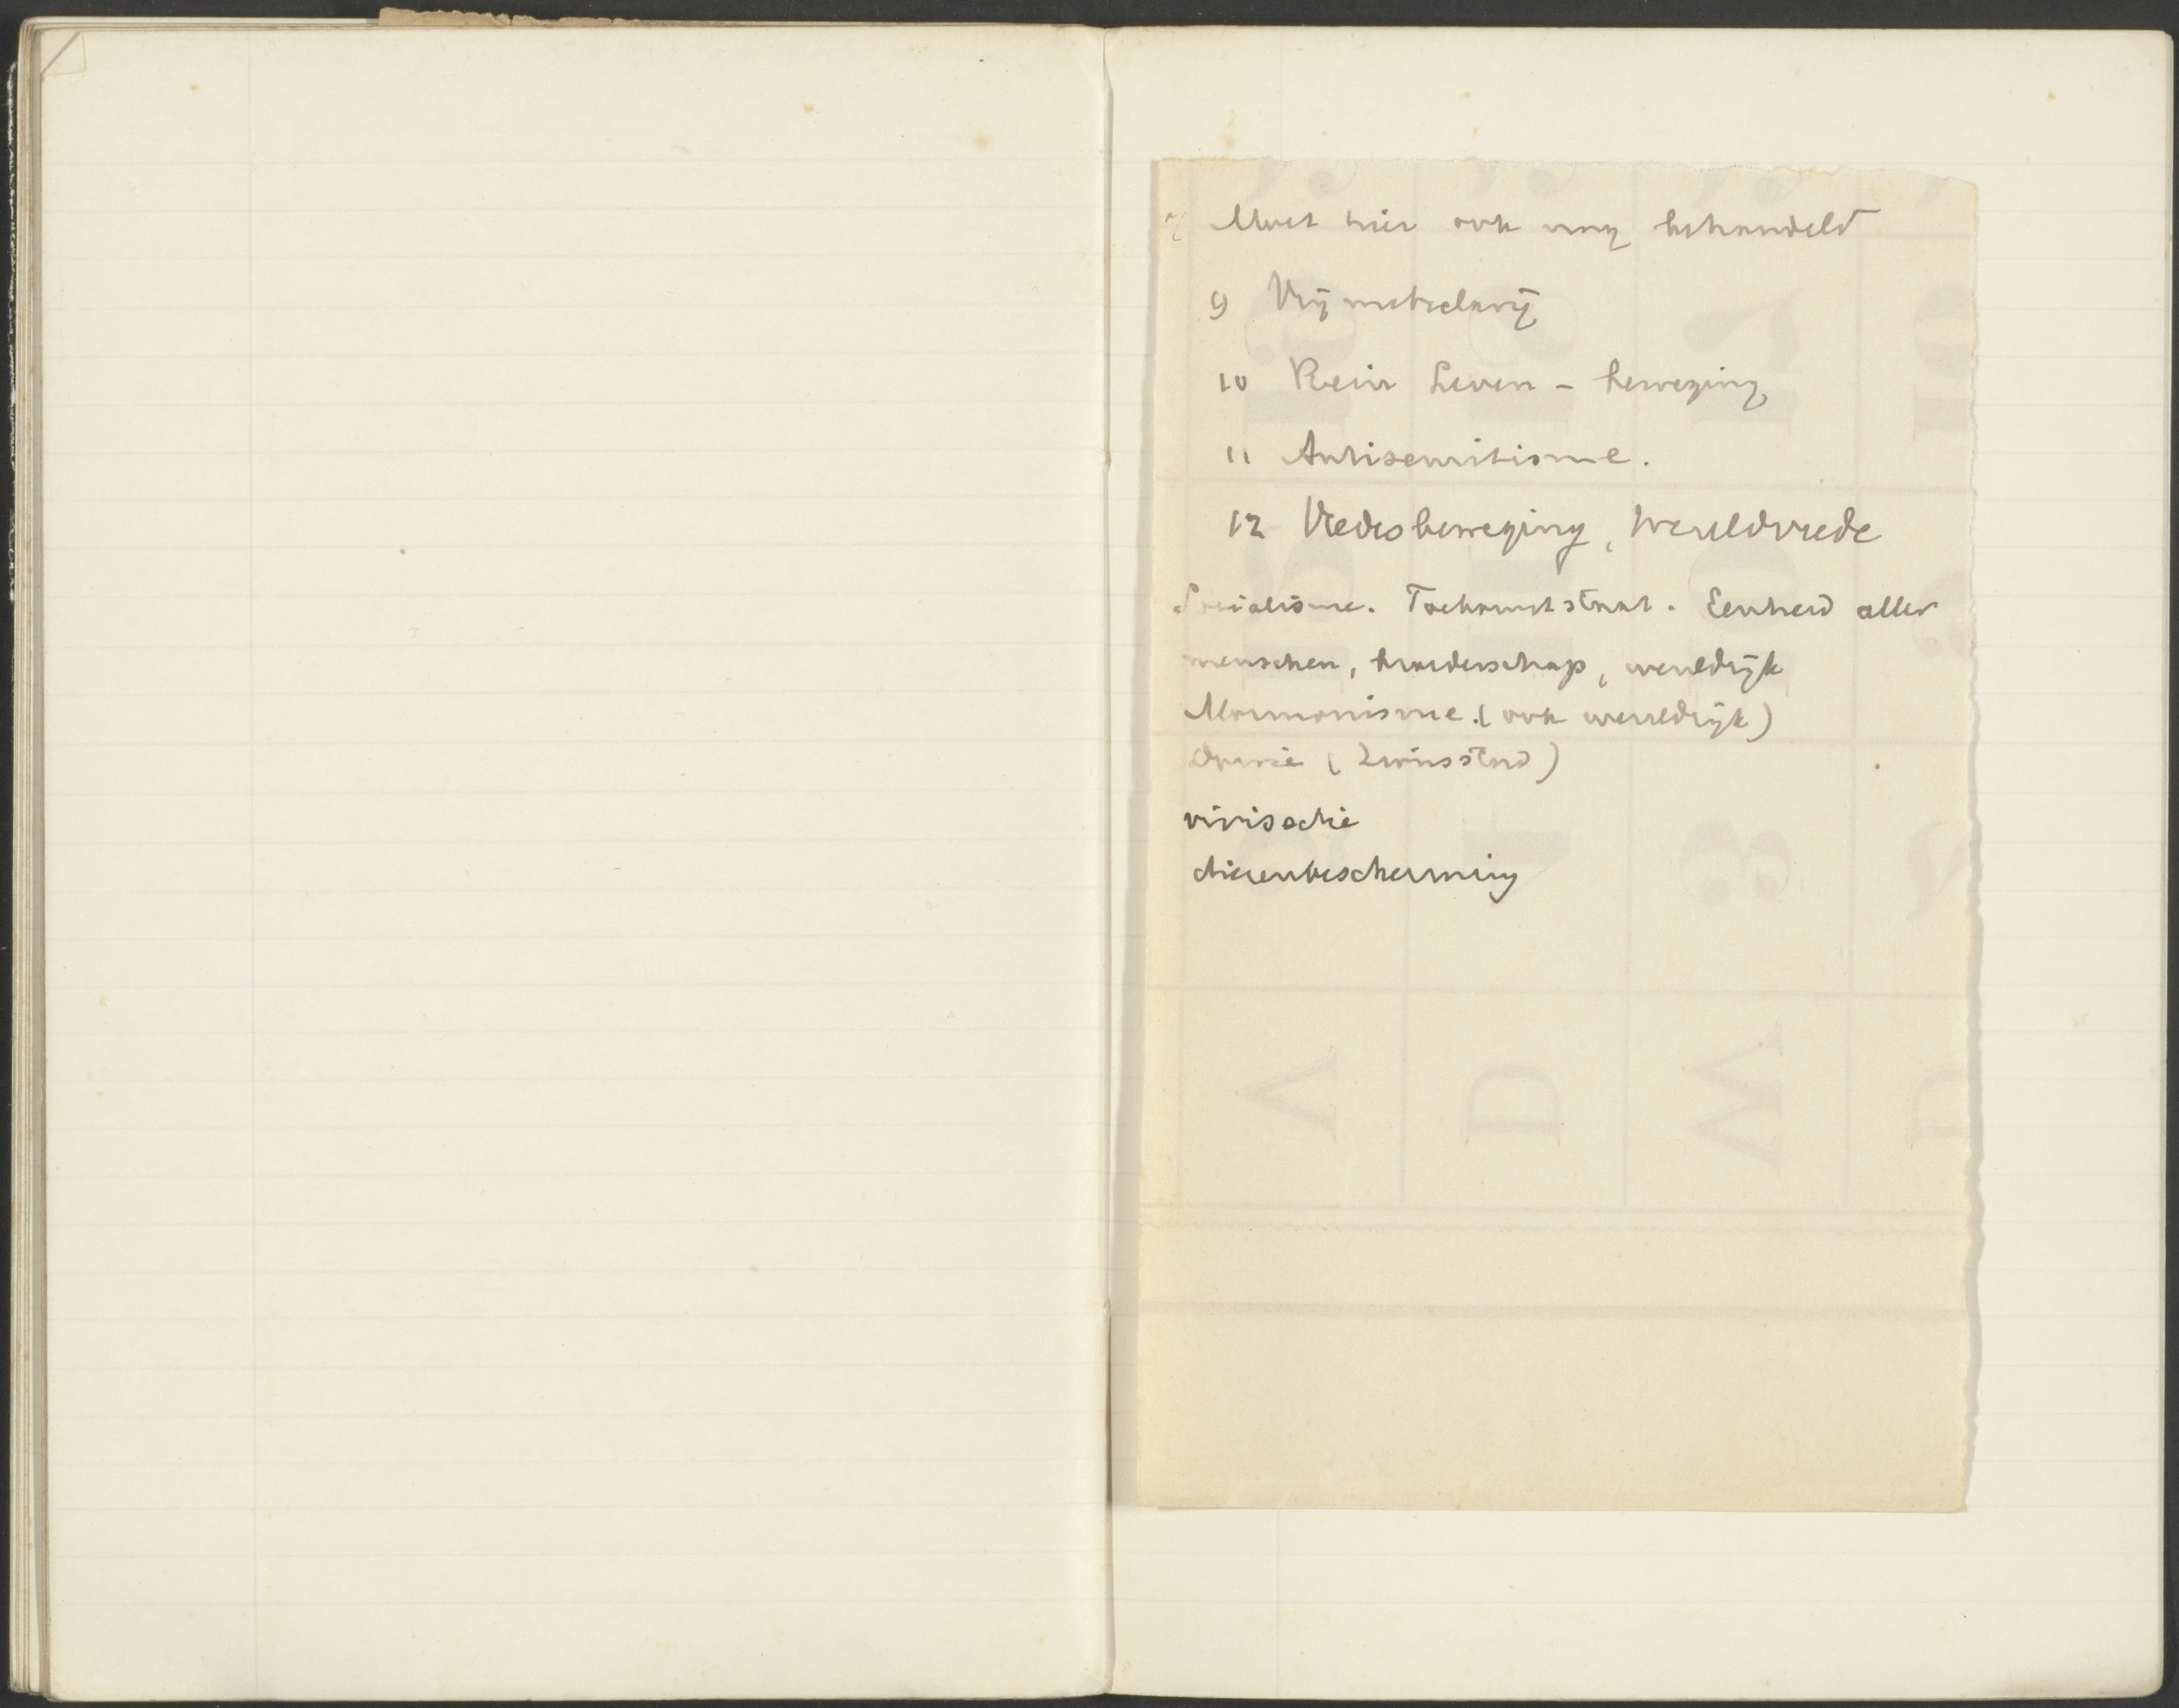 Moet hier ook nog behandeld
9 Vrijmetselarij
10 Rein Leven - beweging
11 Antisemitisme.
12 Vredesbeweging, Wereldvrede
Socialisme. Toekomststaat. Eenheid aller
menschen, broederschap, wereldrijk
Mormonisme. (ook wereldrijk)
(Zionsstad)
vivisectie
dierenbescherming
V D W D